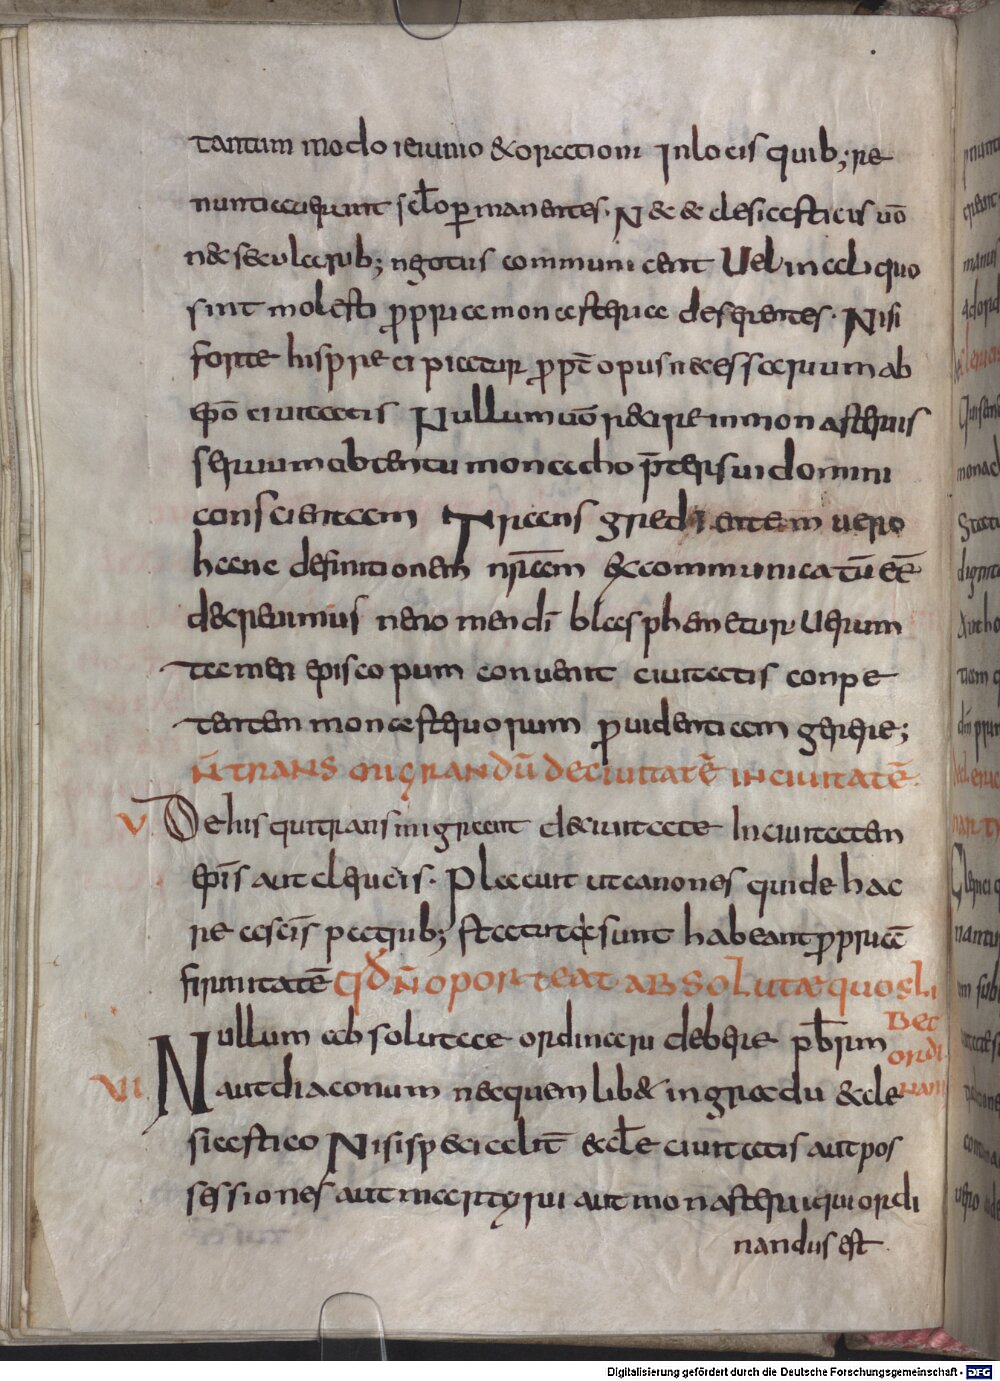 tantum modo ieiunio &orationi Inlocis quib; re
nuntiauerunt sclo permanentes. N& & clesiasticis uō
n&secularib; ngotiis communicent Uel inaliquo
sint molesti ppria monasteria deserentes. Nisi
forte his pre cipiatur ppt opus necessarium ab
epō ciuitatis Nullum uō recipere inmonasteriis
seruum obtentu monacho pter sui domini
conscientiam Transgredientem uero
hanc definitionem nram &communicatū eē
decreuimus ne nomen dī blasphemetur Uerum
tamen episcopum conuenit ciuitatis conpe
tentem monasteriorum puidentiam gerere;
n̄ transmigrandū deciuitatē inciuitatē.
V De his qui transmigrant deciuitate Inciuitatem
epīs aut clericis. Placuit ut canones quide hac
re ascīs patrib; statuti sunt habeant ppriā
firmitatē qđ n̄ oporteat absolutæ quosli
bet
ordi
nari
VI Nullum absolutae ordinari debere pbrm
aut diaconum nequem lib& in gradu &cle
siastico Nisi specialit̄ &cle ciuitatis aut pos
sessiones aut martyrii aut monasterii qui ordi
nandus est
Digitalisierung gefördert durch die Deutsche Forschungsgemeinschaft - DFG